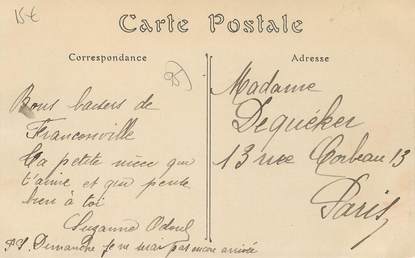 15€
Carte Postale
Correspondance
Adresse
95
Bons baisers de
Franconville
Ta petite nièce qui
t'aime et qui pense
bien à toi
Suzanne
P.S. Dimanche je ne serai pas encore arrivée
Madame
Dequéker
13 rue Corbeau 13
Paris